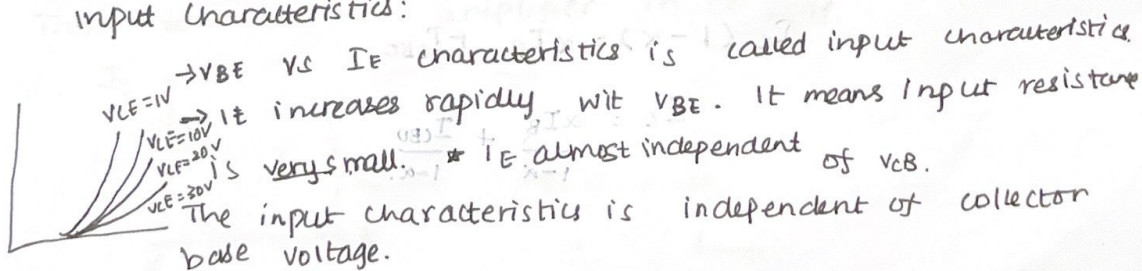 Input Characteristics:
→VBE VS IE characteristics is called input characteristics.
→ It increases rapidly wit VBE. It means Input resistane
is very small. * IE almost independent of VCB.
The input characteristics is independent of collector
base voltage.
VCE=1V
VCE=10V
VCE=20V
VCE=30V